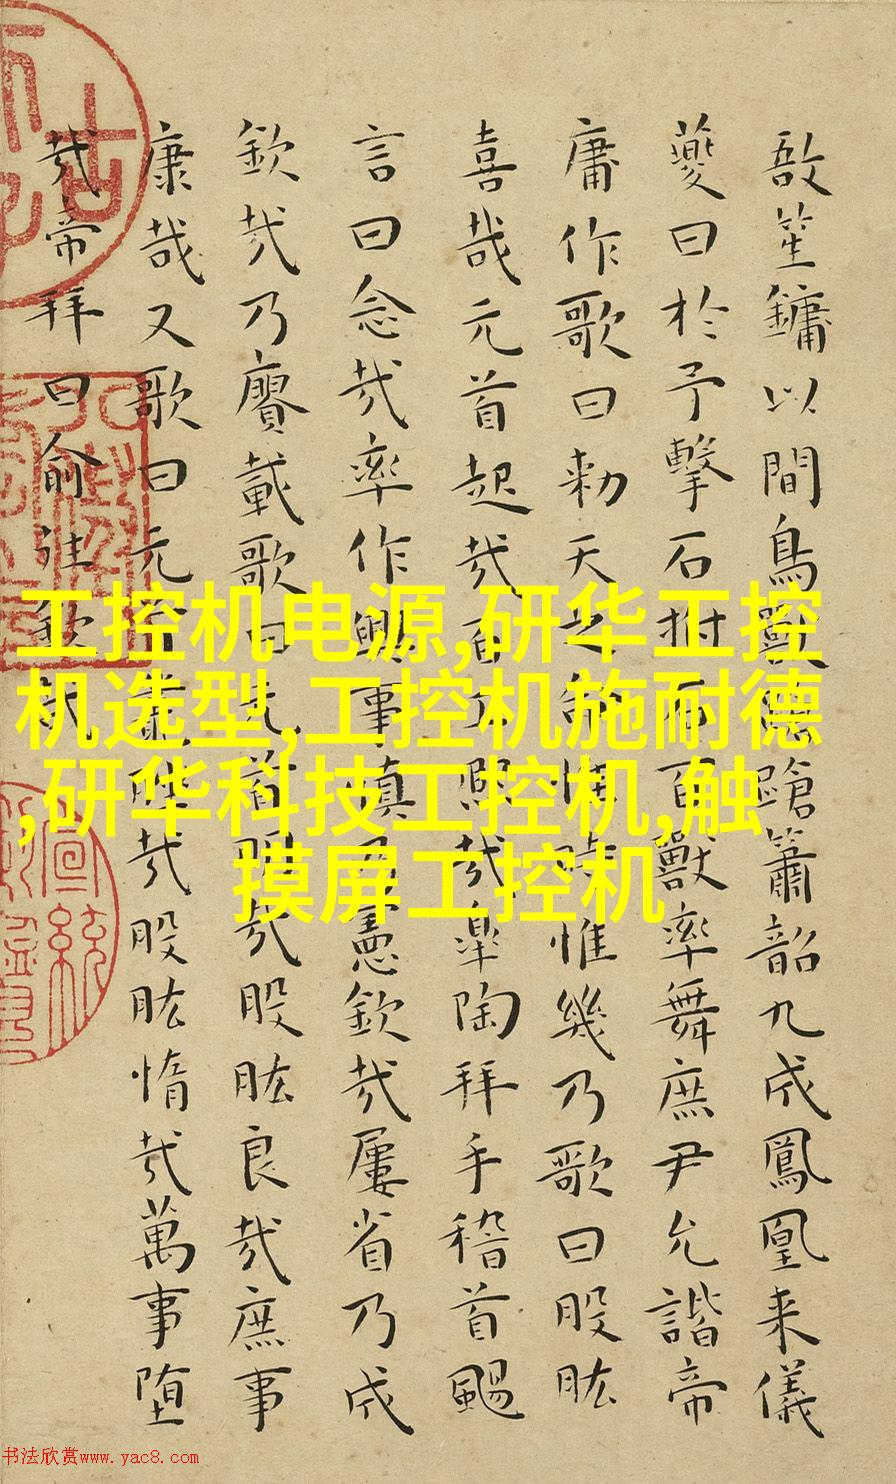 敔笙鏞以間鳥獸蹌蹌簫韶九成鳳凰来儀
夔曰於予擊石拊石百獸率舞庶尹允諧帝
庸作歌曰勑天之命惟時惟幾乃歌曰股肱
喜哉元首起哉百工熙哉皐陶拜手稽首颺
言曰念哉率作興事慎乃憲欽哉屢省乃成
欽哉乃賡載歌曰元首明哉股肱良哉庶事
康哉又歌曰元首叢脞哉股肱惰哉萬事堕
哉帝拜曰俞往欽哉
工控机电源,研华工控
机选型,工控机施耐德
,研华科技工控机,触
摸屏工控机
宣統
书法欣赏www.yac8.com